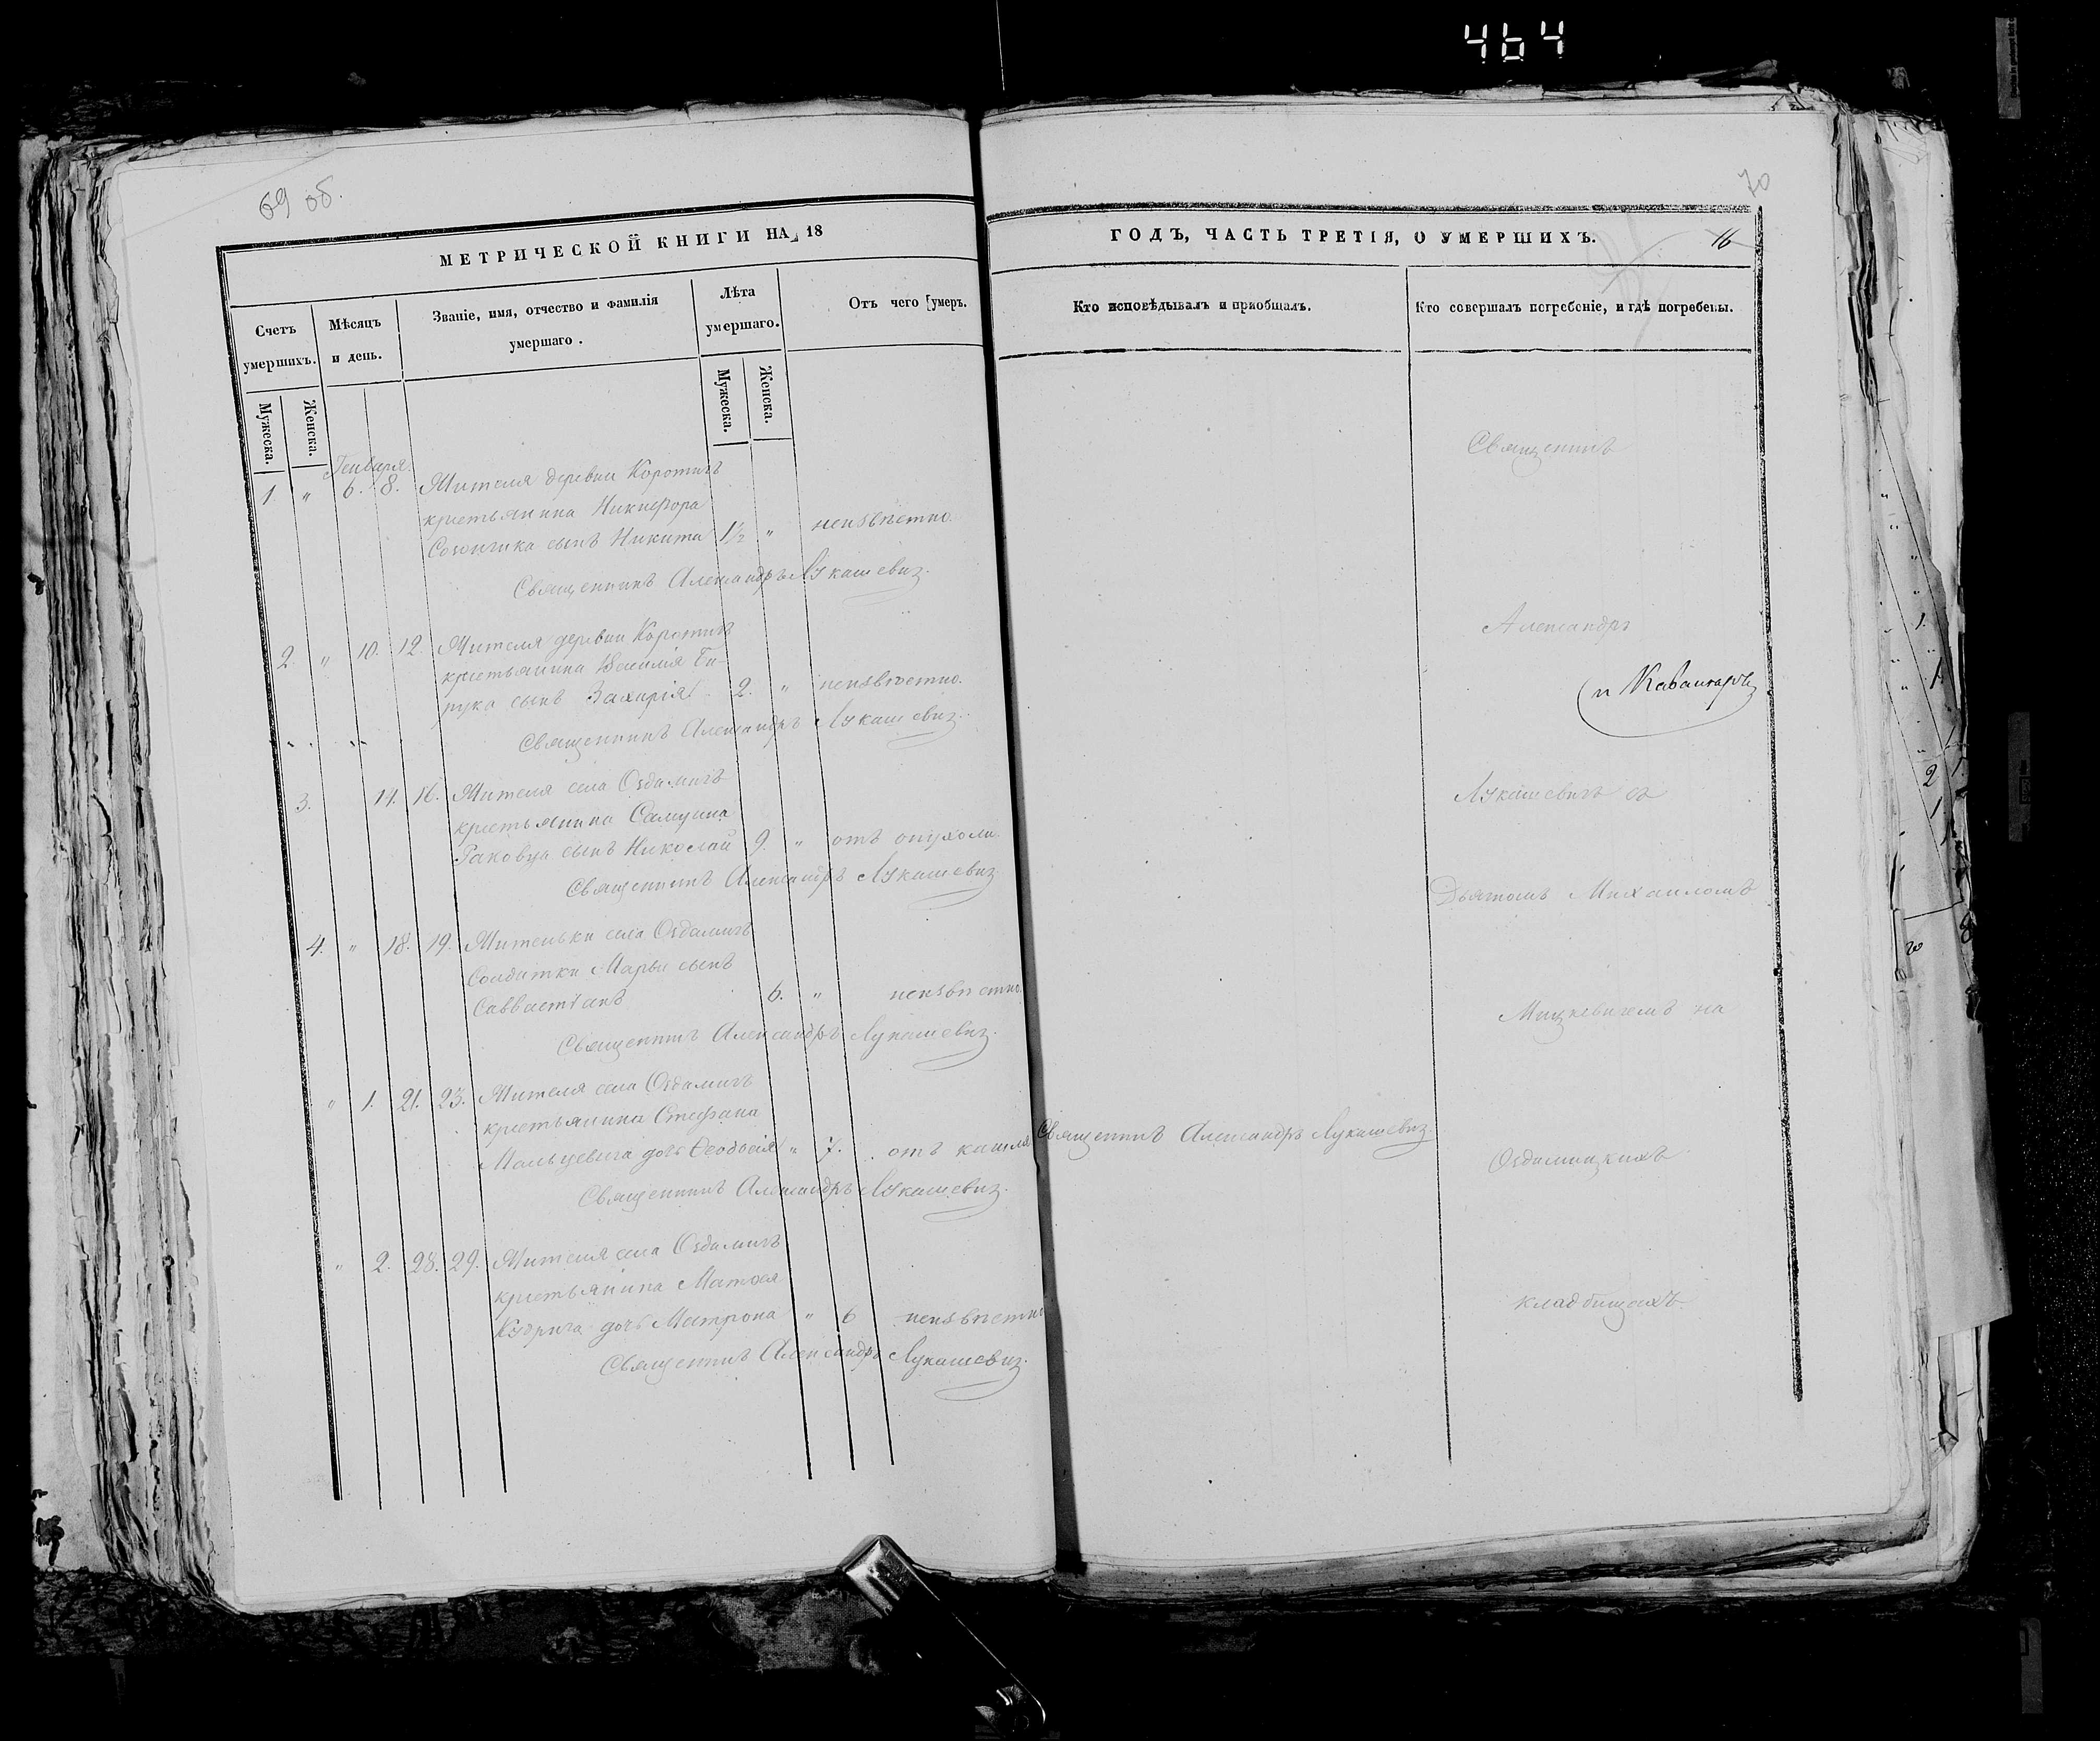 464
69 об.
70
МЕТРИЧЕСКОЙ КНИГИ НА 18
ГОДЪ, ЧАСТЬ ТРЕТІЯ, О УМЕРШИХЪ.
16
Счетъ умершихъ.
Мѣсяцъ и день.
Званіе, имя, отчество и фамилія умершаго.
Лѣта умершаго.
Отъ чего умеръ.
Кто исповѣдывалъ и приобщалъ.
Кто совершалъ погребеніе, и гдѣ погребены.
Мужеска.
Женска.
Мужеска.
Женска.
Генваря
1 " 6. 8. Жителя деревни Коротичъ
крестьянина Никифора
сынъ Никита 1½ " неизвѣстно.
Священникъ Александръ Лукашевич.
2. " 10. 12. Жителя деревни Коротичъ
крестьянина Василія Би-
рука сынъ Захарія 2. " неизвѣстно.
Священникъ Александръ Лукашевич.
3. 14. 16. Жителя села Оздамичъ
крестьянина Самуила
Раковца сынъ Николай 9. " отъ опухоли.
Священникъ Александръ Лукашевич
4. " 18. 19. Жительки села Оздамичъ
Солдатки Марьи сынъ
Савастіанъ 6. " неизвѣстно.
Священникъ Александръ Лукашевич.
" 1. 21. 23. Жителя села Оздамичъ
крестьянина Стефана
Мальцевича дочь Ѳеодосія " 7. отъ кашля Священникъ Александръ Лукашевич.
Священникъ Александръ Лукашевич.
" 2. 28. 29. Жителя села Оздамичъ
крестьянина Матѳея
Кудрича дочь Матрона " 6 неизвѣстно
Священникъ Александръ Лукашевич.
Священникъ
Александръ
Лукашевичъ съ
Дьячкомъ Михаиломъ
Мицкевичемъ на
Оздамицкихъ
кладбищахъ.